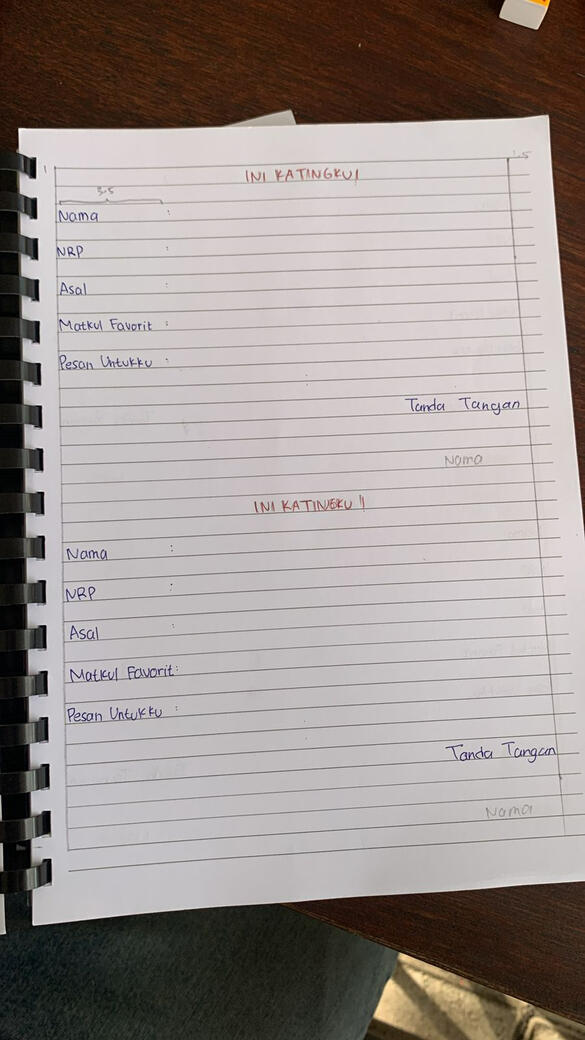 1
1.5
INI KATINGKU!
3.5
Nama :
NRP :
Asal :
Matkul Favorit :
Pesan Untukku :
Tanda Tangan
Nama
INI KATINGKU !!
Nama :
NRP :
Asal :
Matkul Favorit :
Pesan Untukku :
Tanda Tangan
Nama